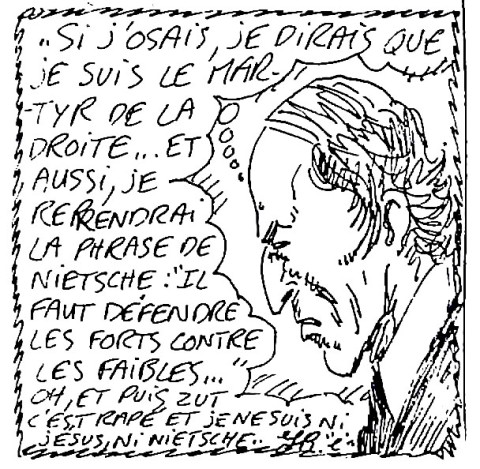 "SI J'OSAIS, JE DIRAIS QUE
JE SUIS LE MAR-
-TYR DE LA
DROITE... ET
AUSSI, JE
REPRENDRAI
LA PHRASE DE
NIETSCHE: "IL
FAUT DÉFENDRE
LES FORTS CONTRE
LES FAIBLES..."
OH, ET PUIS ZUT
C'EST RAPÉ ET JE NE SUIS NI
JESUS, NI NIETSCHE..